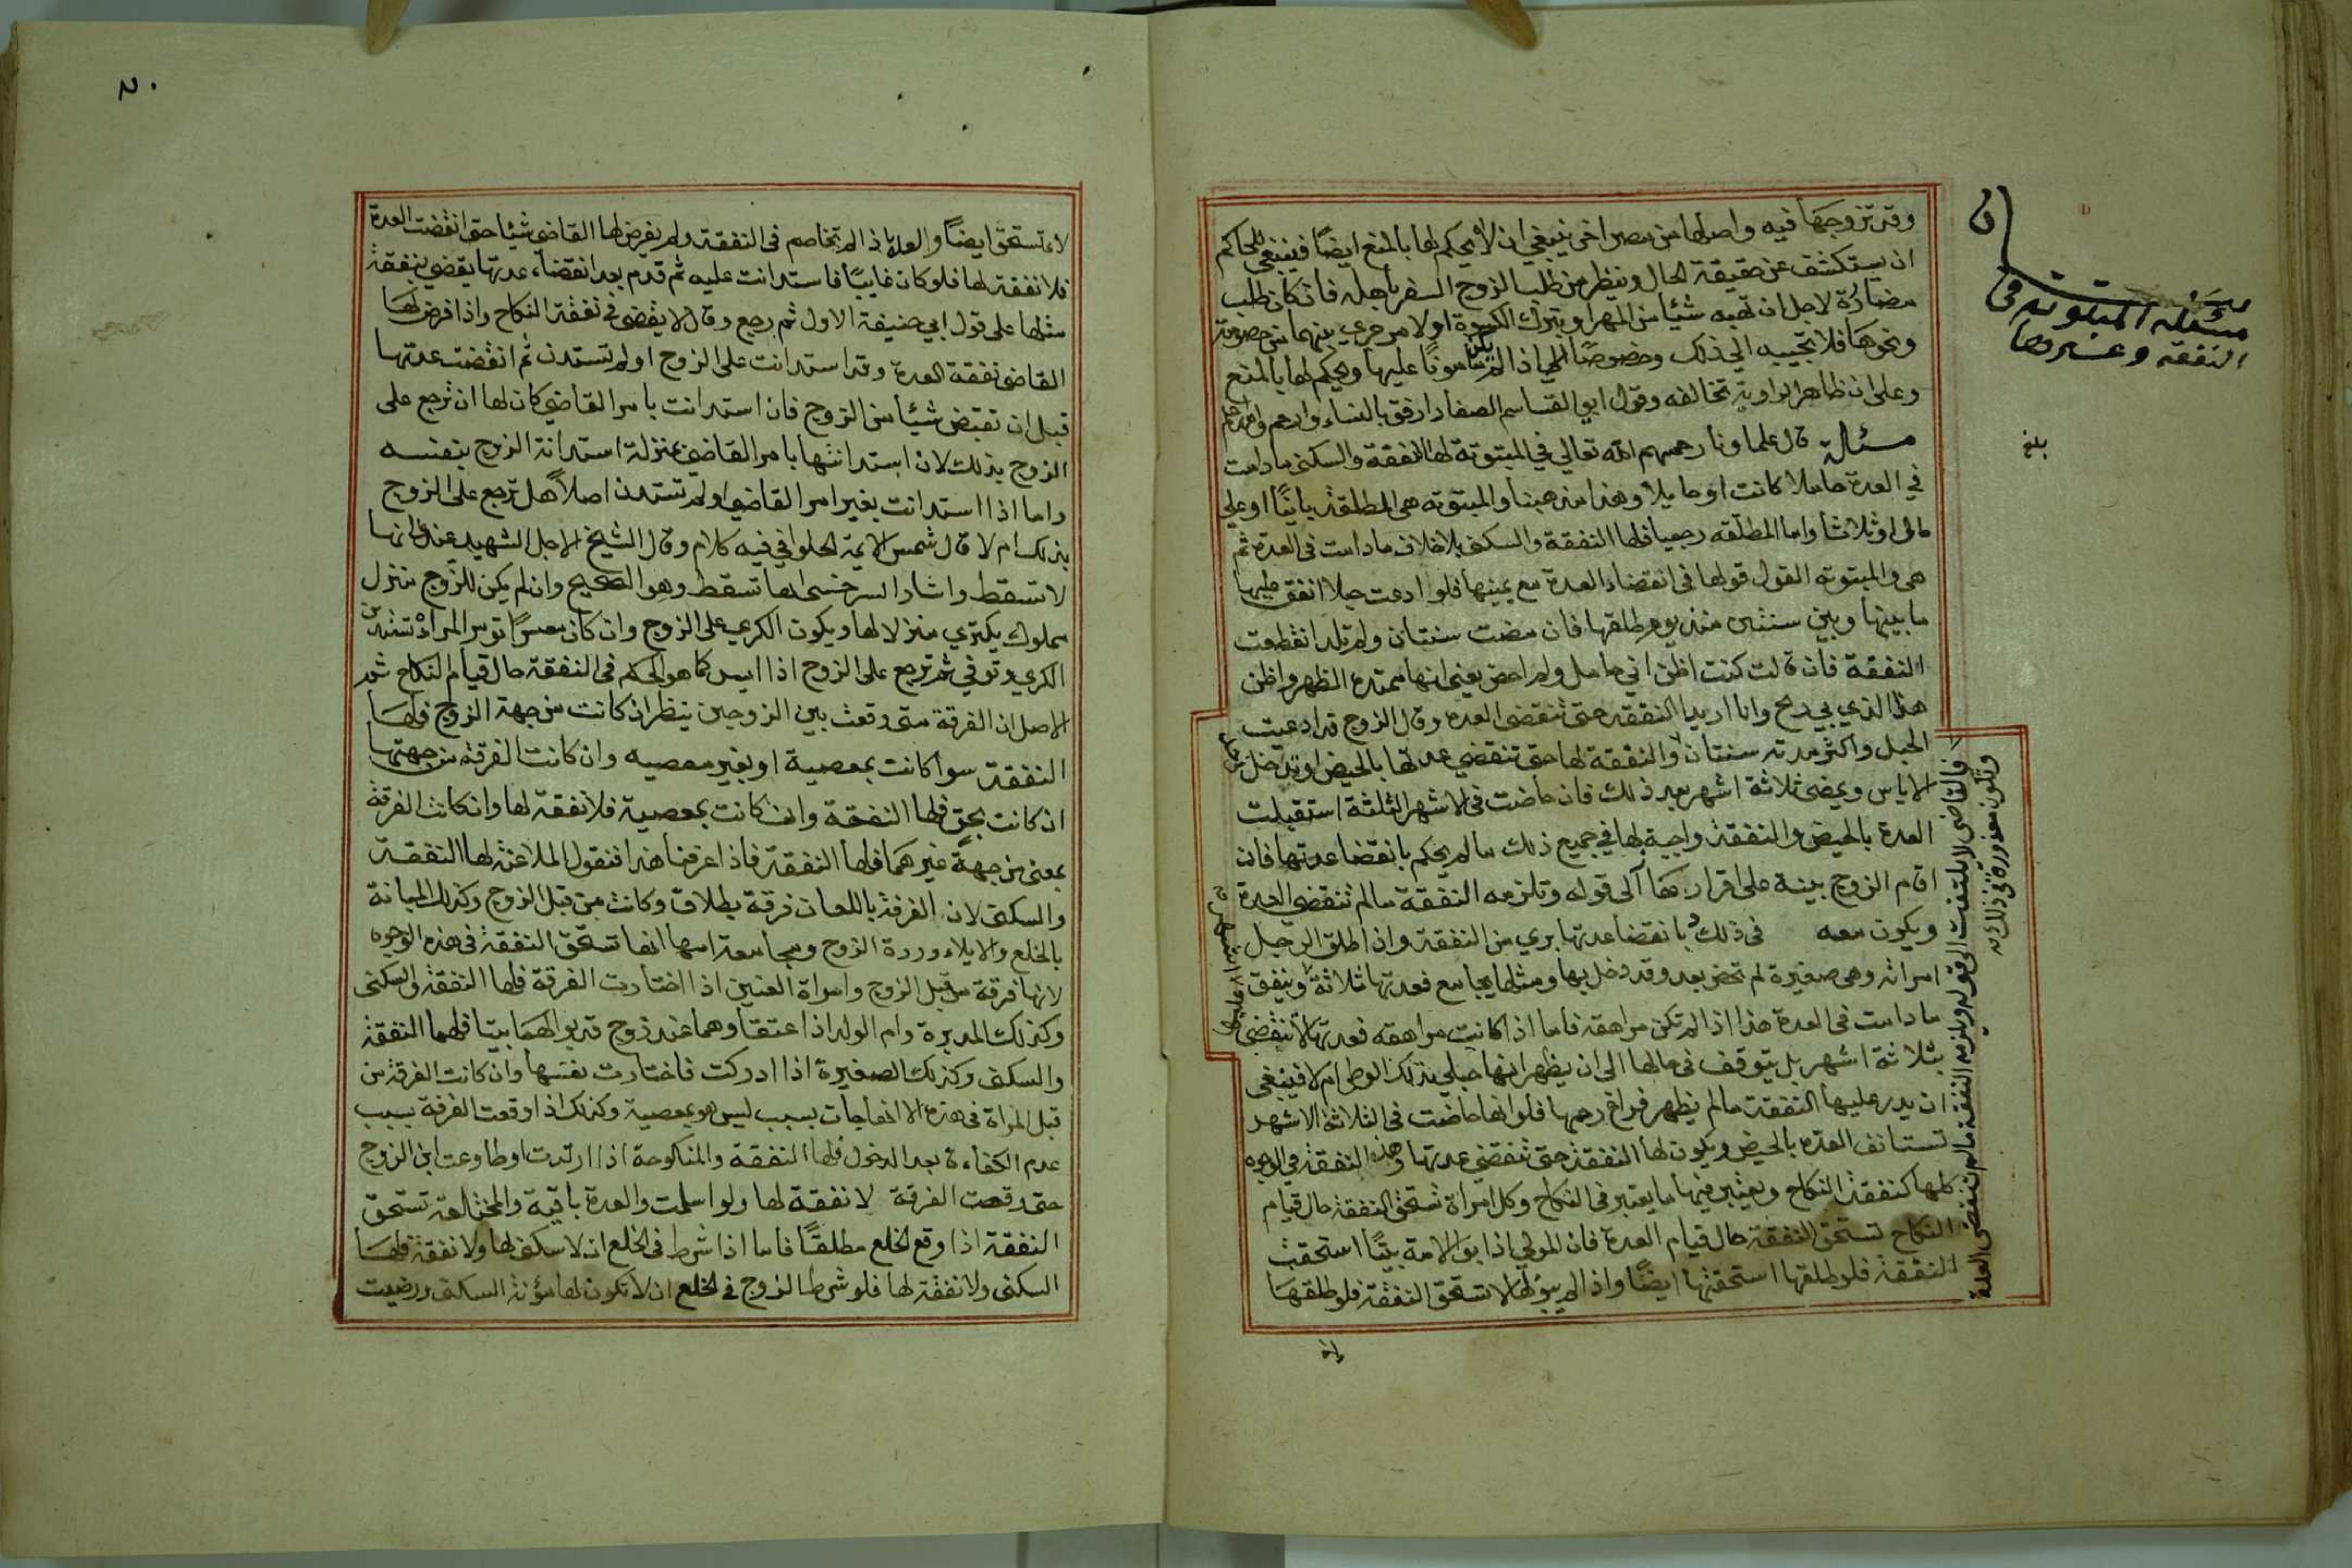 وقد تزوجها فيه واصلها من مصر اخر ينبغي ان لا يحكم لها بالمنع ايضًا فينبغي للحاكم
ان يستكشف عن حقيقة الحال وينظر من طلب الزوج السفر باهله فان كان طلب
مضارة لاجل ان تهبه شيئا من المهر او بترك الكسوة او لامر جري بينهما من خصومة
ونحوها فلا يجيبه الي ذلك وخصوصًا اذا لم يكن مامونًا عليها ويحكم لها بالمنع
وعلي ان ظاهر الرواية تخالفه وقول ابو القاسم الصفار ارفق بالنساء وارحم والله اعلم
مسئالة قال علماونا رحمهم الله تعالي في المبتوتة لها النفقة والسكنى ما دامت
في العدة حاملا كانت او حايلا وهذا مذهبنا والمبتوته هى المطلقة باينًا او علي
مال او ثلاثا واما المطلقه رجعيا فلها النفقة والسكنى بلا خلاف ما دامت فى العدة ثم
هى والمبتوته القول قولها فى انقضاء العدة مع يمينها فلو ادعت حبلا انفق عليها
ما بينها وبين سنتين منذ يوم طلقها فان مضت سنتان ولم تلد انقطعت
النفقة فان قالت كنت اظن اني حامل ولم احض يعني انها ممتدة الطهر واظن
هذا الذي بي ريح وانا اريد النفقة حتى تنقضى العدة وقال الزوج قد ادعيت
الحبل واكثر مدته سنتان والنفقة لها حتى تنقضي عدتها بالحيض او تدخل
الاياس ويمضى ثلاثة اشهر بعد ذلك فان حاضت فى الاشهر الثلثة استقبلت
العدة بالحيض والنفقة واجبة لها في جميع ذلك ما لم يحكم بانقضا عدتها فان
اقام الزوج بينة على اقرارها الى قوله وتلزمه النفقة مالم تنقضي العدة
ويكون معه فى ذلك بانقضا عدتها بري من النفقة وان طلق الرجل
امراته وهى صغيرة لم تحض بعد وقد دخل بها ومثلها يجامع فعدتها ثلاثة وينفق
ما دامت فى العدة هذا اذا لم تكن مراهقة فاما اذا كانت مراهقه فعدتها لا تنقضى
بثلاثة اشهر بل يتوقف فى حالها الى ان يظهر انها حبلي بذلك الوطى ام لا فينبغى
ان يدر عليها النفقة مالم يظهر فراغ رحمها فلو انها حاضت فى الثلاثة الاشهر
تستانف العده بالحيض ويكون لها النفقة حتى تنقضي عدتها وهذه النفقة في الوجوه
كلها كنفقة النكاح ويعتبر فيها ما يعتبر فى النكاح وكل امراة تستحق النفقة حال قيام
النكاح تستحق النفقة حال قيام العدة فان المولي اذا بوا الامة بيتًا استحقت
النفقة فلو طلقها استحقتها ايضًا واذا لم يبوئها لا تستحق النفقة فلو طلقها
لا
مسئلة المبتوته في
النفقه وغيرها
بلغ
فالقاضى لا يلتفت الى قوله ويلزمه النفقة مالم تنقضى العدة
وتكون معذورة فى ذلك
اشهر
عليها
لا تستحق ايضًا والعدة اذا لم تخاصم فى النفقة ولم يفرض لها القاضى شيئا حتى انقضت العدة
فلا نفقة لها فلو كان غايبًا فاستدانت عليه ثم قدم بعد انقضاء عدتها يقضي بنفقة
مثلها على قول ابي حنيفة الاول ثم رجع وقال لا يقضى فى نفقة النكاح واذا فرض لها
القاضى نفقة العدة وقد استدانت على الزوج او لم تستدن ثم انقضت عدتها
قبل ان تقبض شيئا من الزوج فان استدانت بامر القاضي كان لها ان ترجع على
الزوج بذلك لان استدانتها بامر القاضى بمنزلة استدانة الزوج بنفسه
واما اذا استدانت بغير امر القاضى او لم تستدن اصلاً هل ترجع على الزوج
بذلك ام لا قال شمس الايمة الحلوانى فيه كلام وقال الشيخ الاجل الشهيد عندى انها
لا تسقط واشار السرخسى انها تسقط وهو الصحيح وان لم يكن للزوج منزل
مملوك يكتري منزلا لها ويكون الكري على الزوج وان كان معسرًا تومر المراة تستدين
الكري وتوفي ثم ترجع على الزوج اذا ايسر كما هو الحكم فى النفقة حال قيام النكاح ثم
الاصل ان الفرقة متى وقعت بين الزوجين ينظر ان كانت من جهة الزوج فلها
النفقة سوا كانت بمعصية او بغير معصيه وان كانت الفرقة من جهتها
ان كانت بحق فلها النفقة وان كانت بمعصية فلا نفقة لها وان كانت الفرقة
بمعنى من جهة غيرهما فلها النفقة فاذا عرفنا هذا فنقول الملاعنة لها النفقة
والسكنى لان الفرقة باللعان فرقة بطلاق وكانت من قبل الزوج وكذلك المبانة
بالخلع والايلاء وردة الزوج ومجامعة امها انها تستحق النفقة فى هذه الوجوه
لانها فرقة من قبل الزوج وامراة العنين اذا اختارت الفرقة فلها النفقة والسكنى
وكذلك المدبرة وام الولد اذا اعتقا وهما عند زوج قد بوالهما بيتا فلهما النفقة
والسكنى وكذلك الصغيرة اذا ادركت فاختارت نفسها وان كانت الفرقة من
قبل المراة فى هذه الا انها جات بسبب ليس هو بمعصية وكذلك اذا وقعت الفرقة بسبب
عدم الكفاءة بعد الدخول فلها النفقة والمنكوحة اذا ارتدت او طاوعت ابن الزوج
حتى وقعت الفرقة لا نفقة لها ولو اسلمت والعدة باقية والمختلعة تستحق
النفقة اذا وقع الخلع مطلقًا فاما اذا شرط فى الخلع ان لا سكنى لها ولا نفقة فلها
السكنى ولا نفقة لها فلو شرط الزوج فى الخلع ان لا تكون لها مؤنة السكنى ورضيت